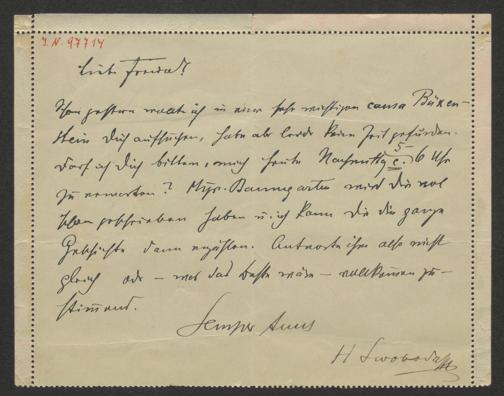 I.N. 97714
Lieber Freund!
Schon gestern wollte ich in einer sehr wichtigen causa Büxen-
stein Dich aufsuchen, habe aber leider keine Zeit gefunden.
Darf ich Dich bitten, mich heute Nachmittg c. 5-6 Uhr
zu erwarten? Msgr. Baumgarten wird Dir wol
schon geschrieben haben u. ich kann Dir die ganze
Geschichte dann erzählen. Antworte ihm also nicht
gleich oder – was das beste wäre – vollkommen zu-
stimmend.
Semper tuus
H Swoboda